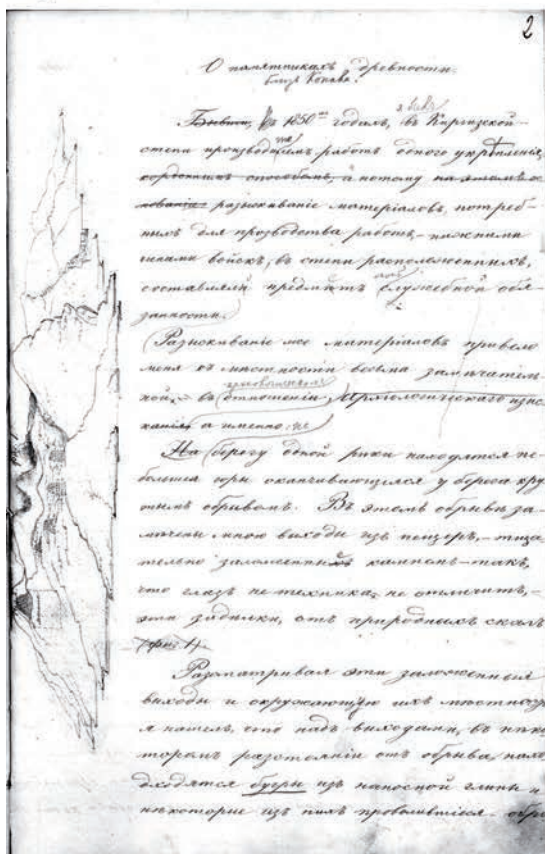 2
О памятникахъ древности
близъ Копала.
Бывши, Въ 1850ыхъ годахъ, въ Киргизской
степи производились работы одного укрѣпленія,
хозяйскимъ способомъ, а потому
разыскиваніе матеріаловъ, потреб-
ныхъ для прозводства работъ, нижними
чинами войскъ, въ степи расположенныхъ,
составляли предмѣтъ служебной обя-
занности.
Разыскиваніе мое матеріаловъ привело
меня къ мѣстности весьма замѣчатель-
ной, въ отношеніи Археологическаго изыс-
канія а именно:
На берегу одной рѣки находятся не-
большія горы оканчивающіяся у берега кру-
тымъ обрывомъ. Въ этомъ обрывѣ за-
мѣчены мною выходы изъ пещеръ, тща-
тельно заложенныхъ камнемъ такъ,
что глазъ не техника, не отличитъ,
эти задѣлки, отъ природныхъ скалъ
(фиг. 1)
Разсматривая эти заложенныя
выходы и окружающую ихъ мѣстность
я нашелъ, что надъ выходами, въ нѣко
торомъ разстояніи отъ обрыва, нахо
дходятся бугры изъ наносной глины и
нѣкоторые изъ нихъ провалившіеся. обра